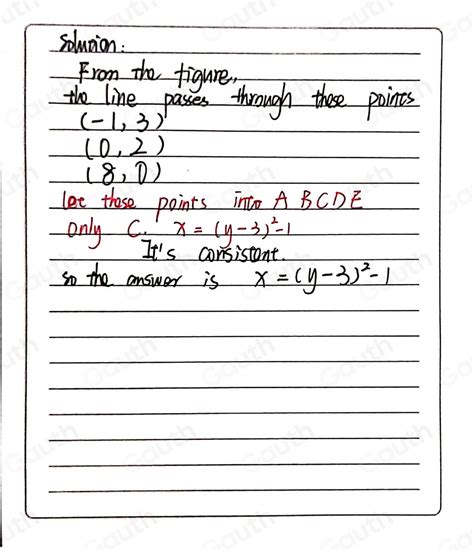 Solution:
From the figure,
the line passes through these points
(-1, 3)
(0, 2)
(8, 0)
let those points into A B C D E
only C. x = (y-3)²-1
It's consistent.
so the answer is x = (y-3)²-1